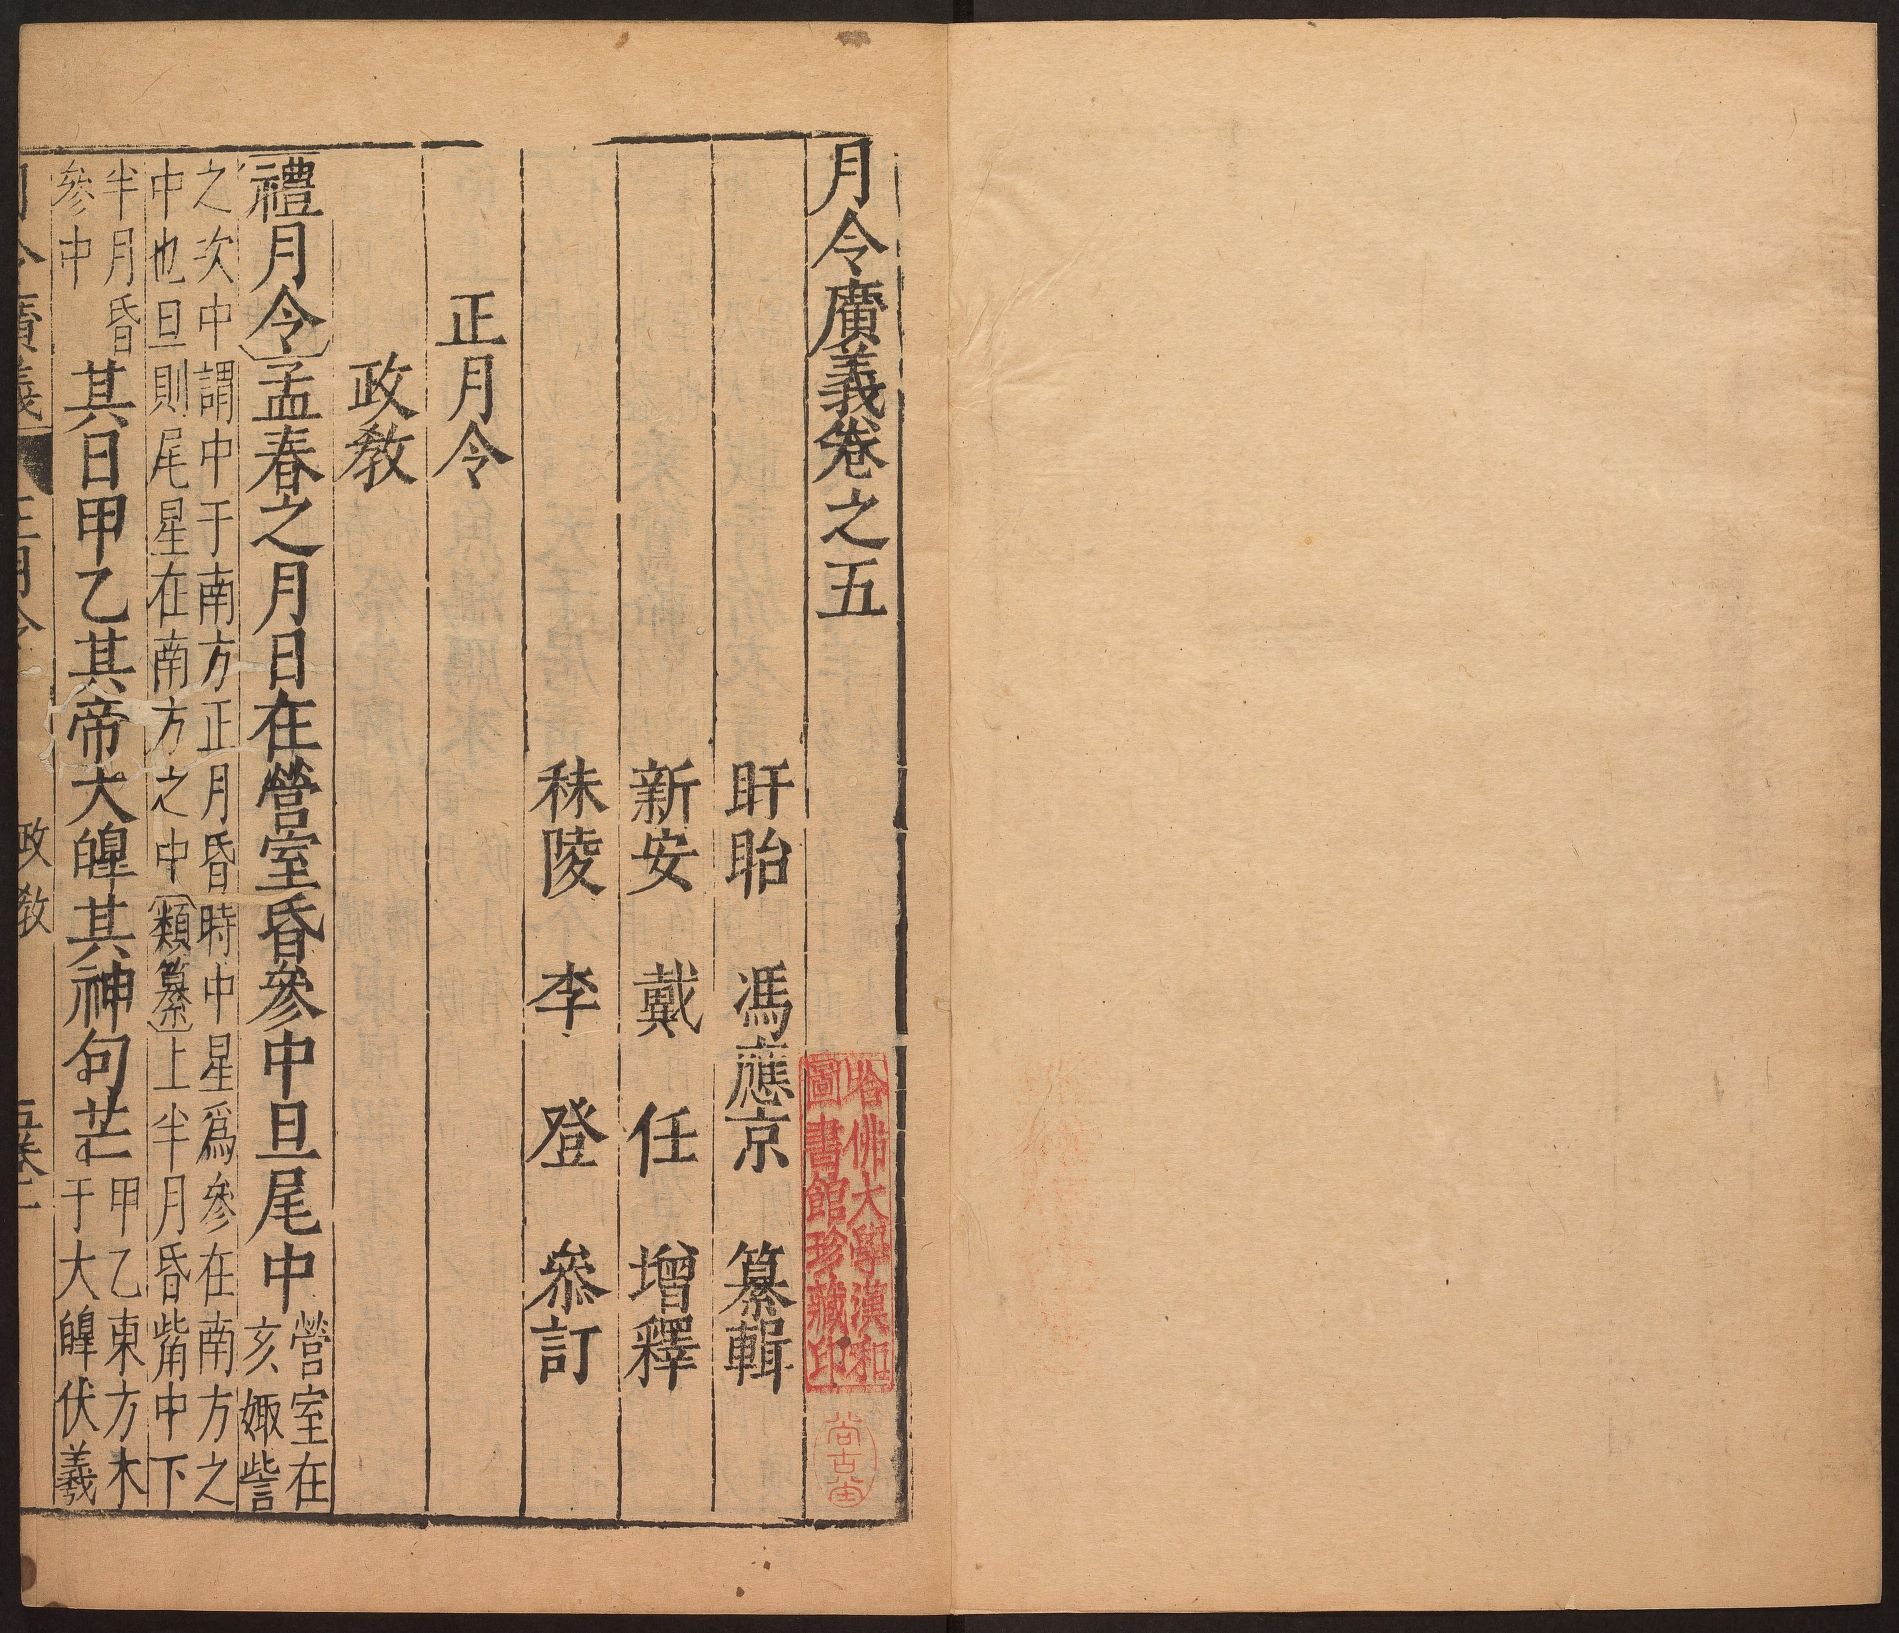 月令廣義卷之五
盱眙 馮應京 纂輯
新安 戴任 增釋
秣陵 李登 叅訂
正月令
政教
禮月令孟春之月日在營室昏參中旦尾中
營室在
亥娵訾
之次中謂中于南方正月昏時中星爲參在南方之
中也旦則尾星在南方之中類纂上半月昏觜中下
半月昏
參中
其日甲乙其帝大皥其神句芒
甲乙東方木
于大皥伏羲
月令廣義 正月令 政教 五卷一
哈佛大學漢和
圖書館珍藏印
尚古堂